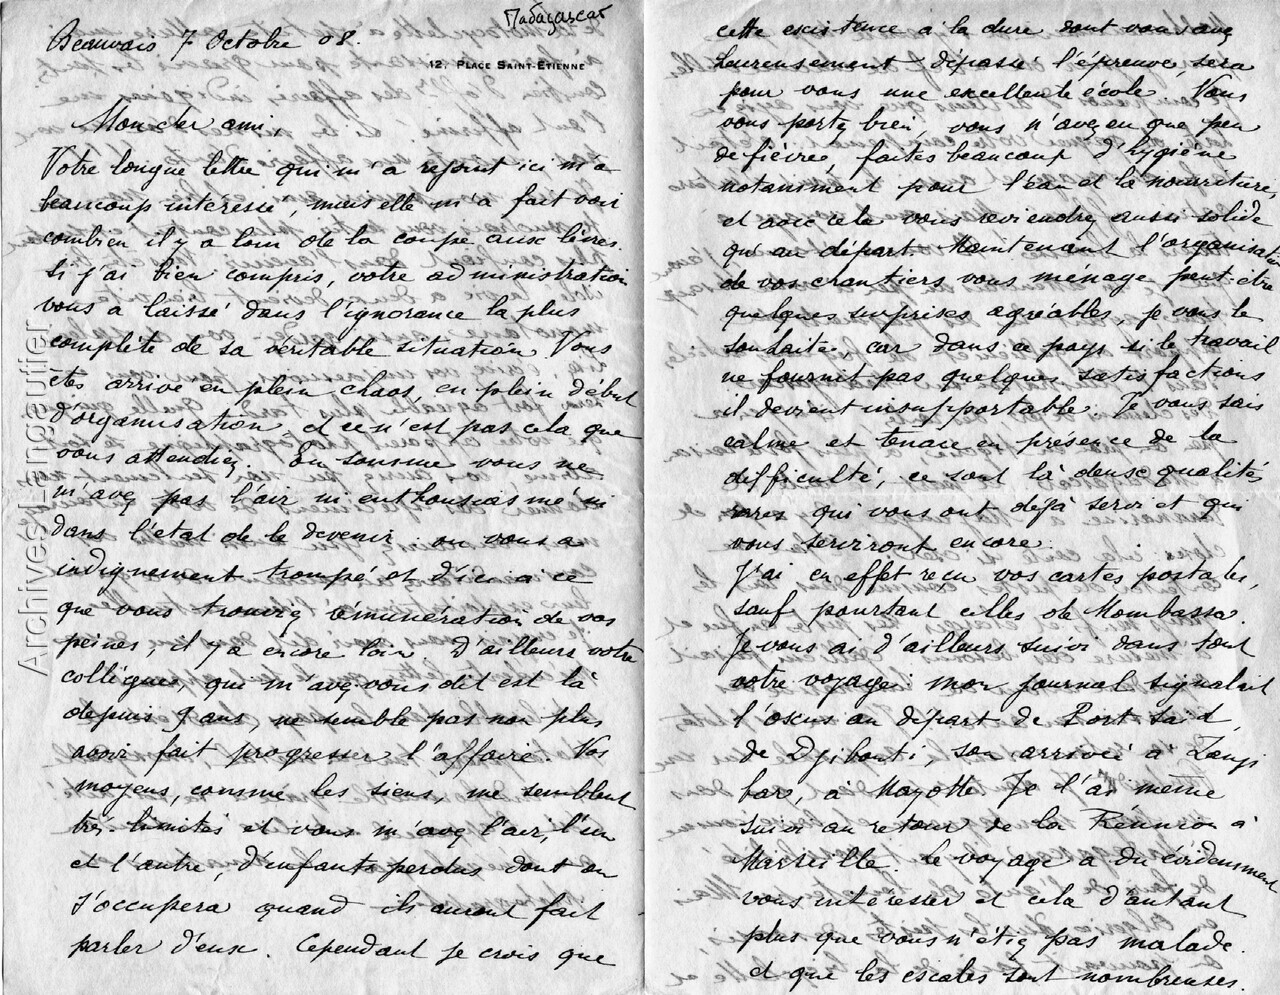 Madagascar
Beauvais 7 Octobre 08.
12, PLACE SAINT-ETIENNE
Mon cher ami,
Votre longue lettre qui m'a rejoint ici m'a
beaucoup intéressé, mais elle m'a fait voir
combien il y a loin de la coupe aux lèvres.
Si j'ai bien compris, votre administration
vous a laissé dans l'ignorance la plus
complète de sa véritable situation. Vous
êtes arrivé en plein chaos, en plein début
d'organisation et ce n'est pas cela que
vous attendiez. En somme vous ne
m'avez pas l'air ni enthousiasmé ni
dans l'état de le devenir. on vous a
indignement trompé et d'ici à ce
que vous trouviez rémunération de vos
peines, il y a encore loin. D'ailleurs votre
collègue, qui m'avez vous dit est là
depuis 9 ans, ne semble pas non plus
avoir fait progresser l'affaire. Vos
moyens, comme les siens, me semblent
très limités et vous m'avez l'air, l'un
et l'autre, d'enfants perdus dont on
s'occupera quand ils auront fait
parler d'eux. Cependant je crois que
cette existence à la dure dont vous avez
heureusement dépassé l'épreuve, sera
pour vous une excellente école. Vous
vous portez bien, vous n'avez eu que peu
de fièvre, faites beaucoup d'hygiène
notamment pour l'eau et la nourriture,
et avec cela vous reviendrez aussi solide
qu'au départ. Maintenant l'organisation
de vos chantiers vous ménage peut-être
quelques surprises agréables, je vous le
souhaite, car dans ce pays si le travail
ne fournit pas quelques satisfactions
il devient insupportable. Je vous sais
calme et tenace en présence de la
difficulté, ce sont là deux qualités
rares qui vous ont déjà servi et qui
vous serviront encore.
J'ai en effet reçu vos cartes postales,
sauf pourtant celles de Mombassa.
Je vous ai d'ailleurs suivi dans tout
votre voyage; mon journal signalait
l'oxus au départ de Port Saïd
de Djibouti, son arrivée à Zanzi
bar, à Mayotte. Je l'ai même
suivi au retour de la Réunion à
Marseille. Le voyage a du évidemment
vous intéresser et cela d'autant
plus que vous n'étiez pas malade.
et que les escales sont nombreuses.
Archives-Langautier